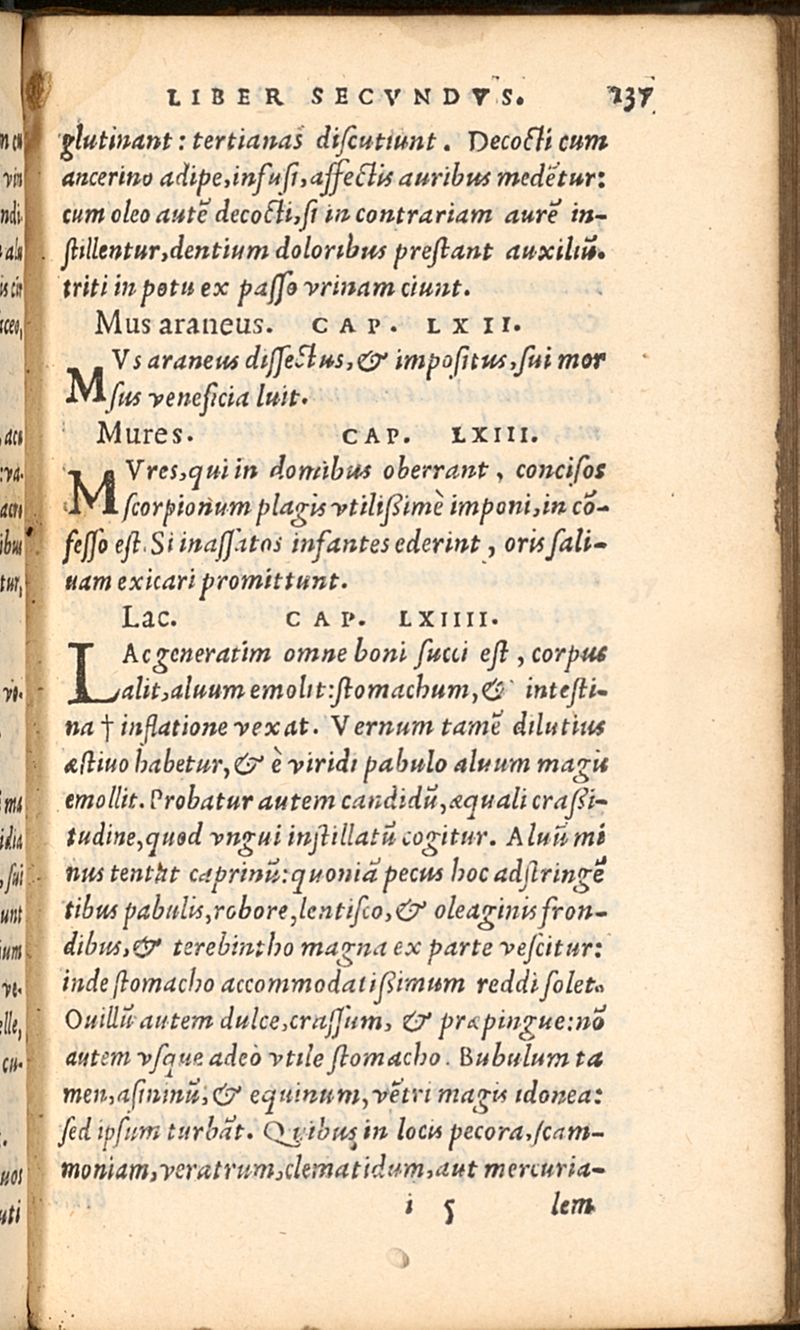 LIBER SECVNDVS. 137
glutinant: tertianas discutiunt. Decocti cum
ancerino adipe, infusi, affectis auribus medẽtur:
cum oleo autẽ decocti, si in contrariam aurẽ in-
stillentur, dentium doloribus prestant auxiliũ.
triti in potu ex passo vrinam ciunt.
Mus araneus. CAP. LXII.
MVs araneus dissectus, & impositus, sui mor
sus veneficia luit.
Mures. CAP. LXIII.
MVres, qui in domibus oberrant, concisos
scorpionum plagis vtilißimè imponi, in cõ-
fesso est. Si inassatos infantes ederint, oris sali-
uam exicari promittunt.
Lac. CAP. LXIIII.
LAc generatim omne boni succi est, corpus
alit, aluum emolit: stomachum, & intesti-
na † inflatione vexat. Vernum tamẽ dilutius
æstiuo habetur, & è viridi pabulo aluum magis
emollit. Probatur autem candidũ, æquali craßi-
tudine, quod vngui instillatũ cogitur. Aluũ mi
nus tentat caprinũ: quoniã pecus hoc adstringẽ
tibus pabulis, robore, lentisco, & oleaginis fron-
dibus, & terebintho magna ex parte vescitur:
inde stomacho accommodatißimum reddi solet.
Ouillũ autem dulce, crassum, & præpingue: nõ
autem vsque adeò vtile stomacho. Bubulum ta
men, asininũ, & equinum, vẽtri magis idonea:
sed ipsum turbãt. Quibus in locis pecora, scam-
moniam, veratrum, clematidum, aut mercuria-
i 5 lem